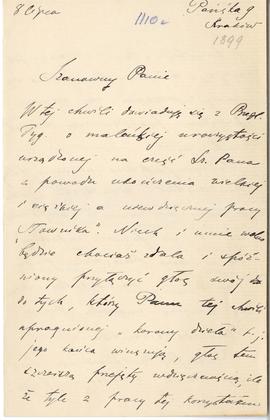 8 Lipca
1110
Pańska 9
Kraków
1899
Szanowny Panie
W tej chwili dowiaduję się z Przegl.
Tyg. o maleńkiej uroczystości
urządzonej na cześć Sz. Pana
z powodu ukończenia wielkiej
i ciężkiej a niewdzięcznej pracy
"Słownika". Niech i mnie wolno
będzie chociaż zdala i spóź-
niony przyłączyć głos swój do
do tych którzy Panu tej chwili
upragnionej "korony dzieła" i
jego końca winszują, głos ten
szczerszą przejęty wdzięcznością, ile
że tyle z pracy tej korzystałem